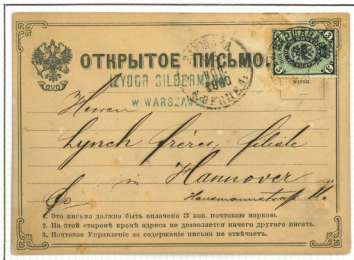 ОТКРЫТОЕ ПИСЬМО
IZYDOR SILBERMAN
W WARSZAWIE
Herren
Lynch frères, filiale
in Hannover
1. Это письмо должно быть оплачено 3 коп. почтовою маркою.
2. На этой стороне кроме адреса не дозволяется ничего другого писать.
3. Почтовое Управление за содержание письма не отвечает.